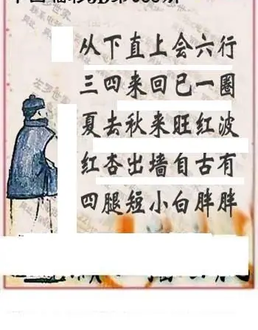 从下直上会六行
三四来回已一圈
夏去秋来旺红波
红杏出墙自古有
四腿短小白胖胖